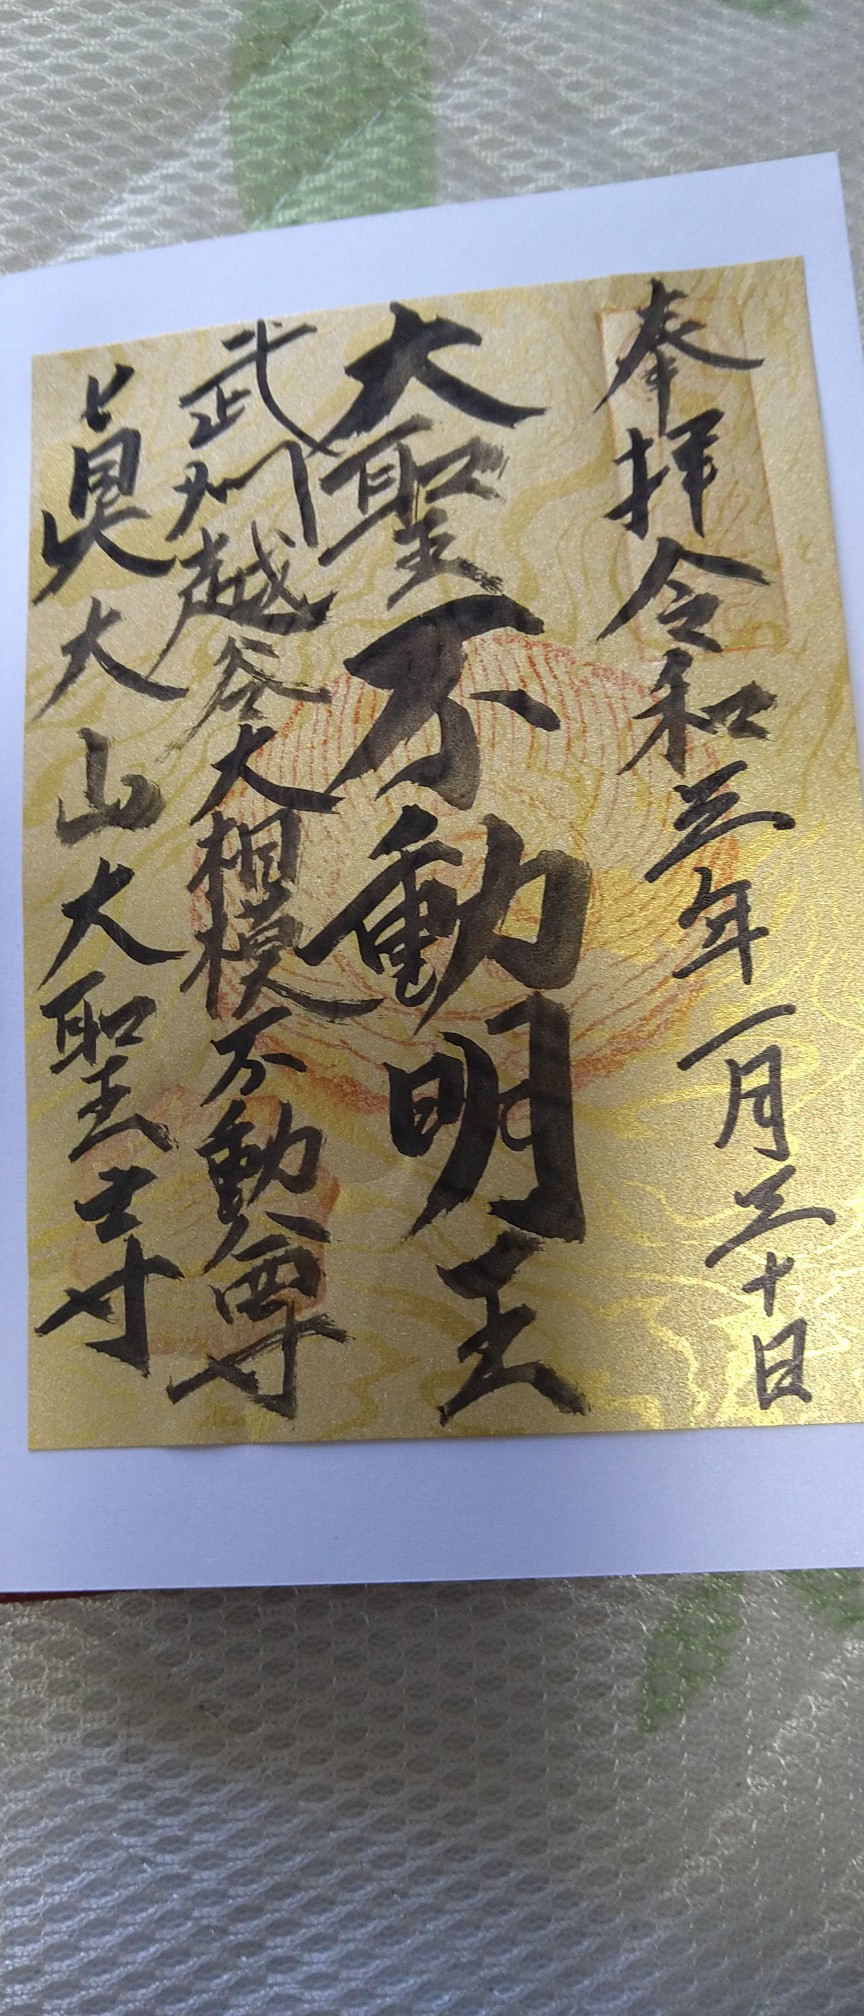 奉拝令和三年一月三十日
大聖不動明王
武州越谷大相模不動尊
眞大山大聖寺